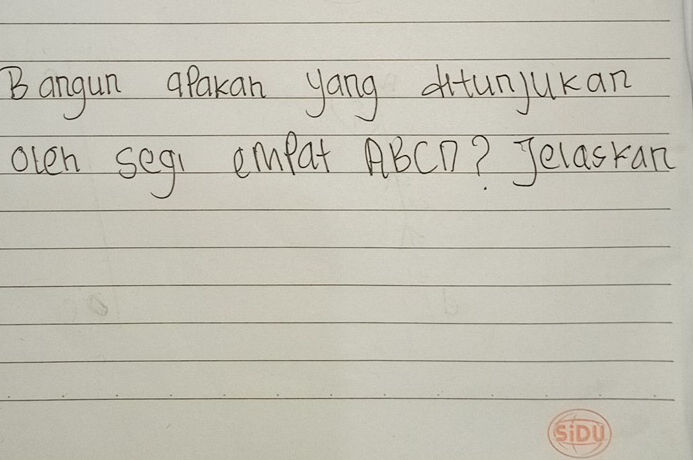 Bangun apakah yang ditunjukan
oleh segi empat ABCD? Jelaskan
SiDU